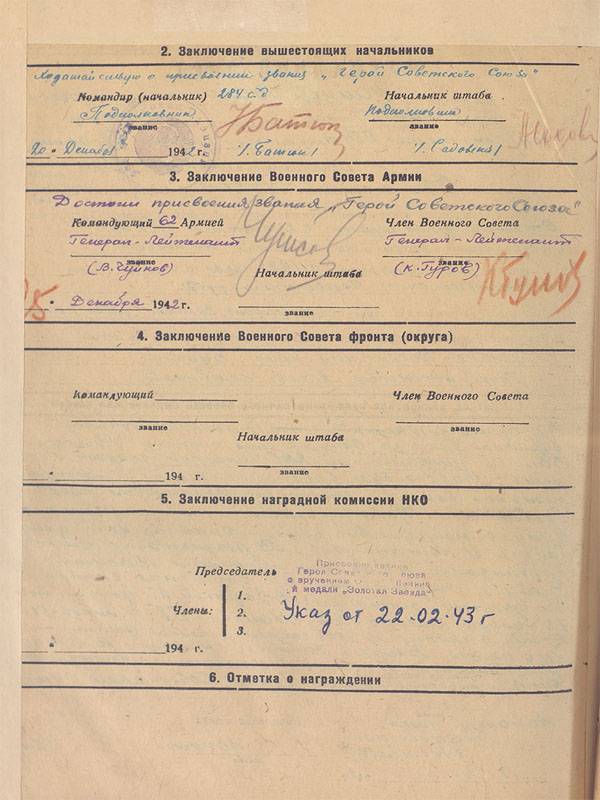 2. Заключение вышестоящих начальников
Ходатайствую о присвоении звания „Герой Советского Союза"
Командир (начальник) 284 с.д Начальник штаба
Подполковник Подполковник
звание звание
20 • Декабря 1942 г. /. Батюк/ /. Садовский/
3. Заключение Военного Совета Армии
Достоин присвоения звания „Герой Советского Союза"
Командующий 62 Армией Член Военного Совета
Генерал-Лейтенант Генерал-Лейтенант
звание звание
(В. Чуйков) Начальник штаба (К. Гуров)
• Декабря 1942 г.
звание
4. Заключение Военного Совета фронта (округа)
Командующий Член Военного Совета
звание звание
Начальник штаба
" • 194 г. звание
5. Заключение наградной комиссии НКО
Присвоено звание
Председатель Героя Советского Союза
с вручением
1. й медали „Золотая Звезда"
Члены: 2. Указ от 22.02.43 г
3.
" • 194 г.
6. Отметка о награждении